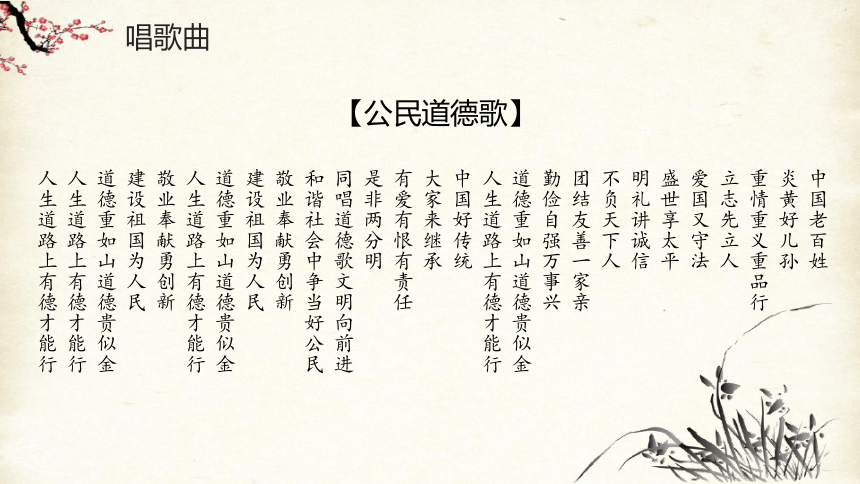 唱歌曲
【公民道德歌】
中国老百姓
炎黄好儿孙
重情重义重品行
立志先立人
爱国又守法
盛世享太平
明礼讲诚信
不负天下人
团结友善一家亲
勤俭自强万事兴
道德重如山道德贵似金
人生道路上有德才能行
中国好传统
大家来继承
有爱有恨有责任
是非两分明
同唱道德歌文明向前进
和谐社会中争当好公民
敬业奉献勇创新
建设祖国为人民
道德重如山道德贵似金
人生道路上有德才能行
敬业奉献勇创新
建设祖国为人民
道德重如山道德贵似金
人生道路上有德才能行
人生道路上有德才能行